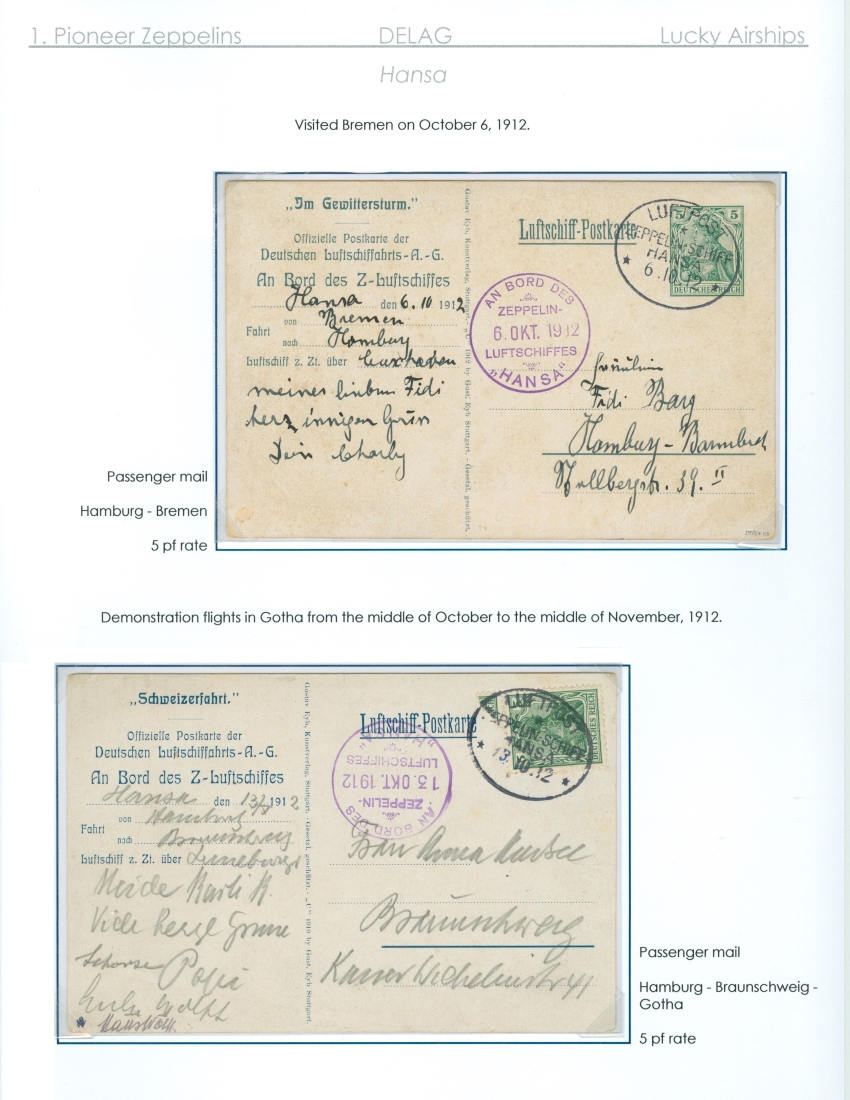 1. Pioneer Zeppelins DELAG Lucky Airships
Hansa
Visited Bremen on October 6, 1912.
„Im Gewittersturm."
Offizielle Postkarte der
Deutschen Luftschiffahrts-A.-G.
An Bord des Z-Luftschiffes
Hansa den 6.10 1912
von Bremen
Fahrt
nach Hamburg
Luftschiff z. Zt. über Cuxhaven
meiner lieben Fidi
herz innigen Gruss
Dein Charly
Gustav Eyb, Kunstverlag, Stuttgart. „C" 1912 by Gust. Eyb Stuttgart. - Gesetzl. geschützt.
Luftschiff-Postkarte
5 5
DEUTSCHES REICH
LUFTPOST
ZEPPELIN-SCHIFF
HANSA
* 6.10.12 *
AN BORD DES
ZEPPELIN-
6. OKT. 1912
LUFTSCHIFFES
„HANSA"
Fräulein
Fidi Barg
Hamburg-Barmbeck
39. II
Passenger mail
Hamburg - Bremen
5 pf rate
Demonstration flights in Gotha from the middle of October to the middle of November, 1912.
„Schweizerfahrt."
Offizielle Postkarte der
Deutschen Luftschiffahrts-A.-G.
An Bord des Z-Luftschiffes
Hansa den 13/X 1912
von Hamburg
Fahrt
nach Braunschweig
Luftschiff z. Zt. über Luneburg
Papi
Gustav Eyb, Kunstverlag, Stuttgart. Gesetzl. geschützt. - „C" 1910 by Gust. Eyb Stuttgart.
Luftschiff-Postkarte
DEUTSCHES REICH
LUFTPOST
ZEPPELIN-SCHIFF
HANSA
* 13.10.12 *
AN BORD DES
ZEPPELIN-
13. OKT. 1912
LUFTSCHIFFES
„HANSA"
Frau Anna
Braunschweig
Kaiser Wilhelmstr 41
Passenger mail
Hamburg - Braunschweig -
Gotha
5 pf rate